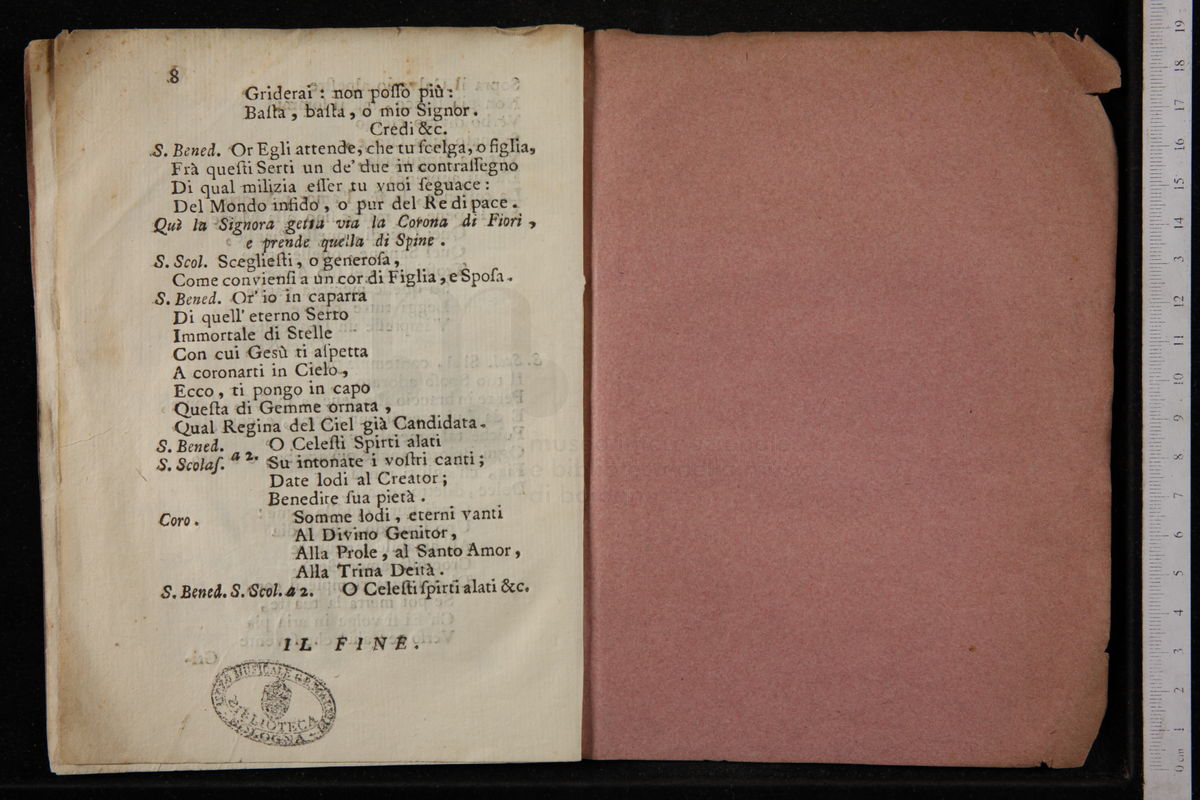 8
Griderai : non poſſo più :
Baſta , baſta , o mio Signor .
Credi &c.
S. Bened. Or Egli attende, che tu ſcelga, o figlia,
Frà queſti Serti un de' due in contraſſegno
Di qual milizia eſſer tu vuoi ſeguace :
Del Mondo infido , o pur del Re di pace .
Quì la Signora getta via la Corona di Fiori ,
e prende quella di Spine .
S. Scol. Scegliefti , o generoſa ,
Come convienſi a un cor di Figlia , e Spoſa .
S. Bened. Or' io in caparra
Di quell' eterno Serto
Immortale di Stelle
Con cui Gesù ti aſpetta
A coronarti in Cielo ,
Ecco , ti pongo in capo
Queſta di Gemme ornata ,
Qual Regina del Ciel già Candidata .
S. Bened. O Celeſti Spirti alati
S. Scolaſ. a 2. Su intonate i voſtri canti ;
Date lodi al Creator ;
Benedite ſua pietà .
Coro . Somme lodi , eterni vanti
Al Divino Genitor ,
Alla Prole , al Santo Amor ,
Alla Trina Deità .
S. Bened. S. Scol. a 2. O Celeſti ſpirti alati &c.
IL FINE .
BIBLIOTECA
BOLOGNA
museo
e bib
di bologna
0 cm 1 2 3 4 5 6 7 8 9 10 11 12 13 14 15 16 17 18 19